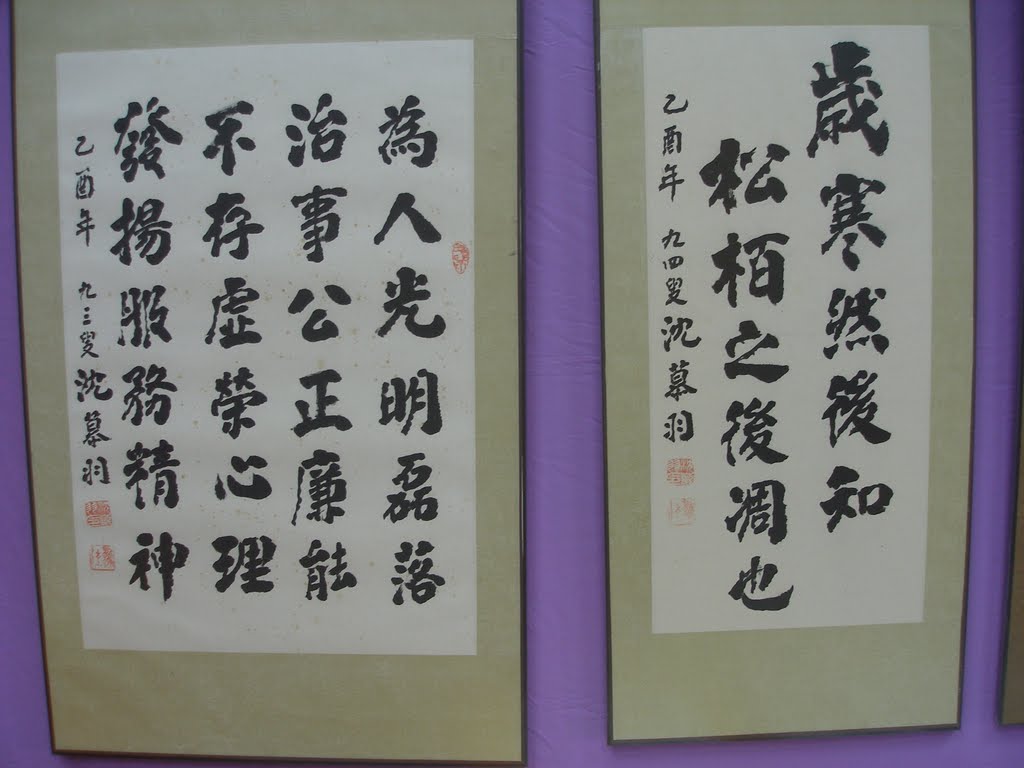 歲寒然後知
松栢之後凋也
乙酉年 九四叟沈慕羽
為人光明磊落
治事公正廉能
不存虛榮心理
發揚服務精神
乙酉年 九三叟沈慕羽